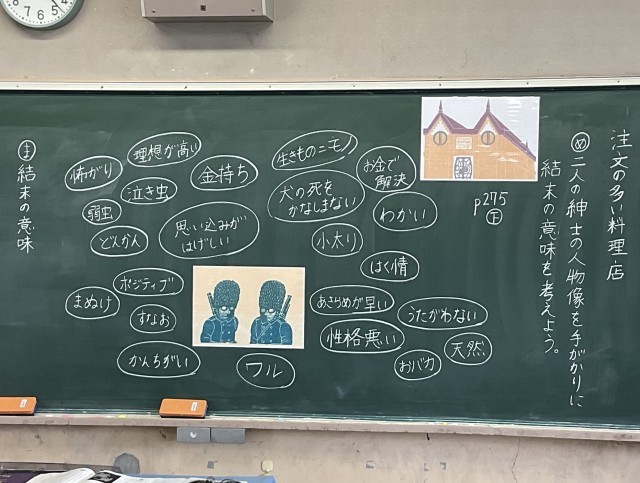 注文の多い料理店
め 二人の紳士の人物像を手がかりに
結末の意味を考えよう。
p275
下
お金で
解決
わかい
生きものニモ
犬の死を
かなしまない
小太り
はく情
あきらめが早い
うたがわない
性格悪い
天然
おバカ
理想が高い
金持ち
怖がり
泣き虫
弱虫
どんかん
思い込みが
はげしい
ポジティブ
まぬけ
すなお
かんちがい
ワル
ま 結末の意味